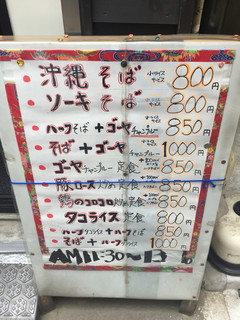 沖縄そば 小ライスサービス 800円
ソーキそば 小ライスサービス 800円
ハーフそば+ゴーヤチャンプルー 850円
そば+ゴーヤチャンプルー 1000円
ゴーヤチャンプルー定食 850円
豚ロース炒め定食 850円
鶏のコロコロ炒め定食 850円
タコライス定食 800円
ハーフタコライス+ハーフそば 850円
そば+ハーフタコライス 1000円
AM11:30~13